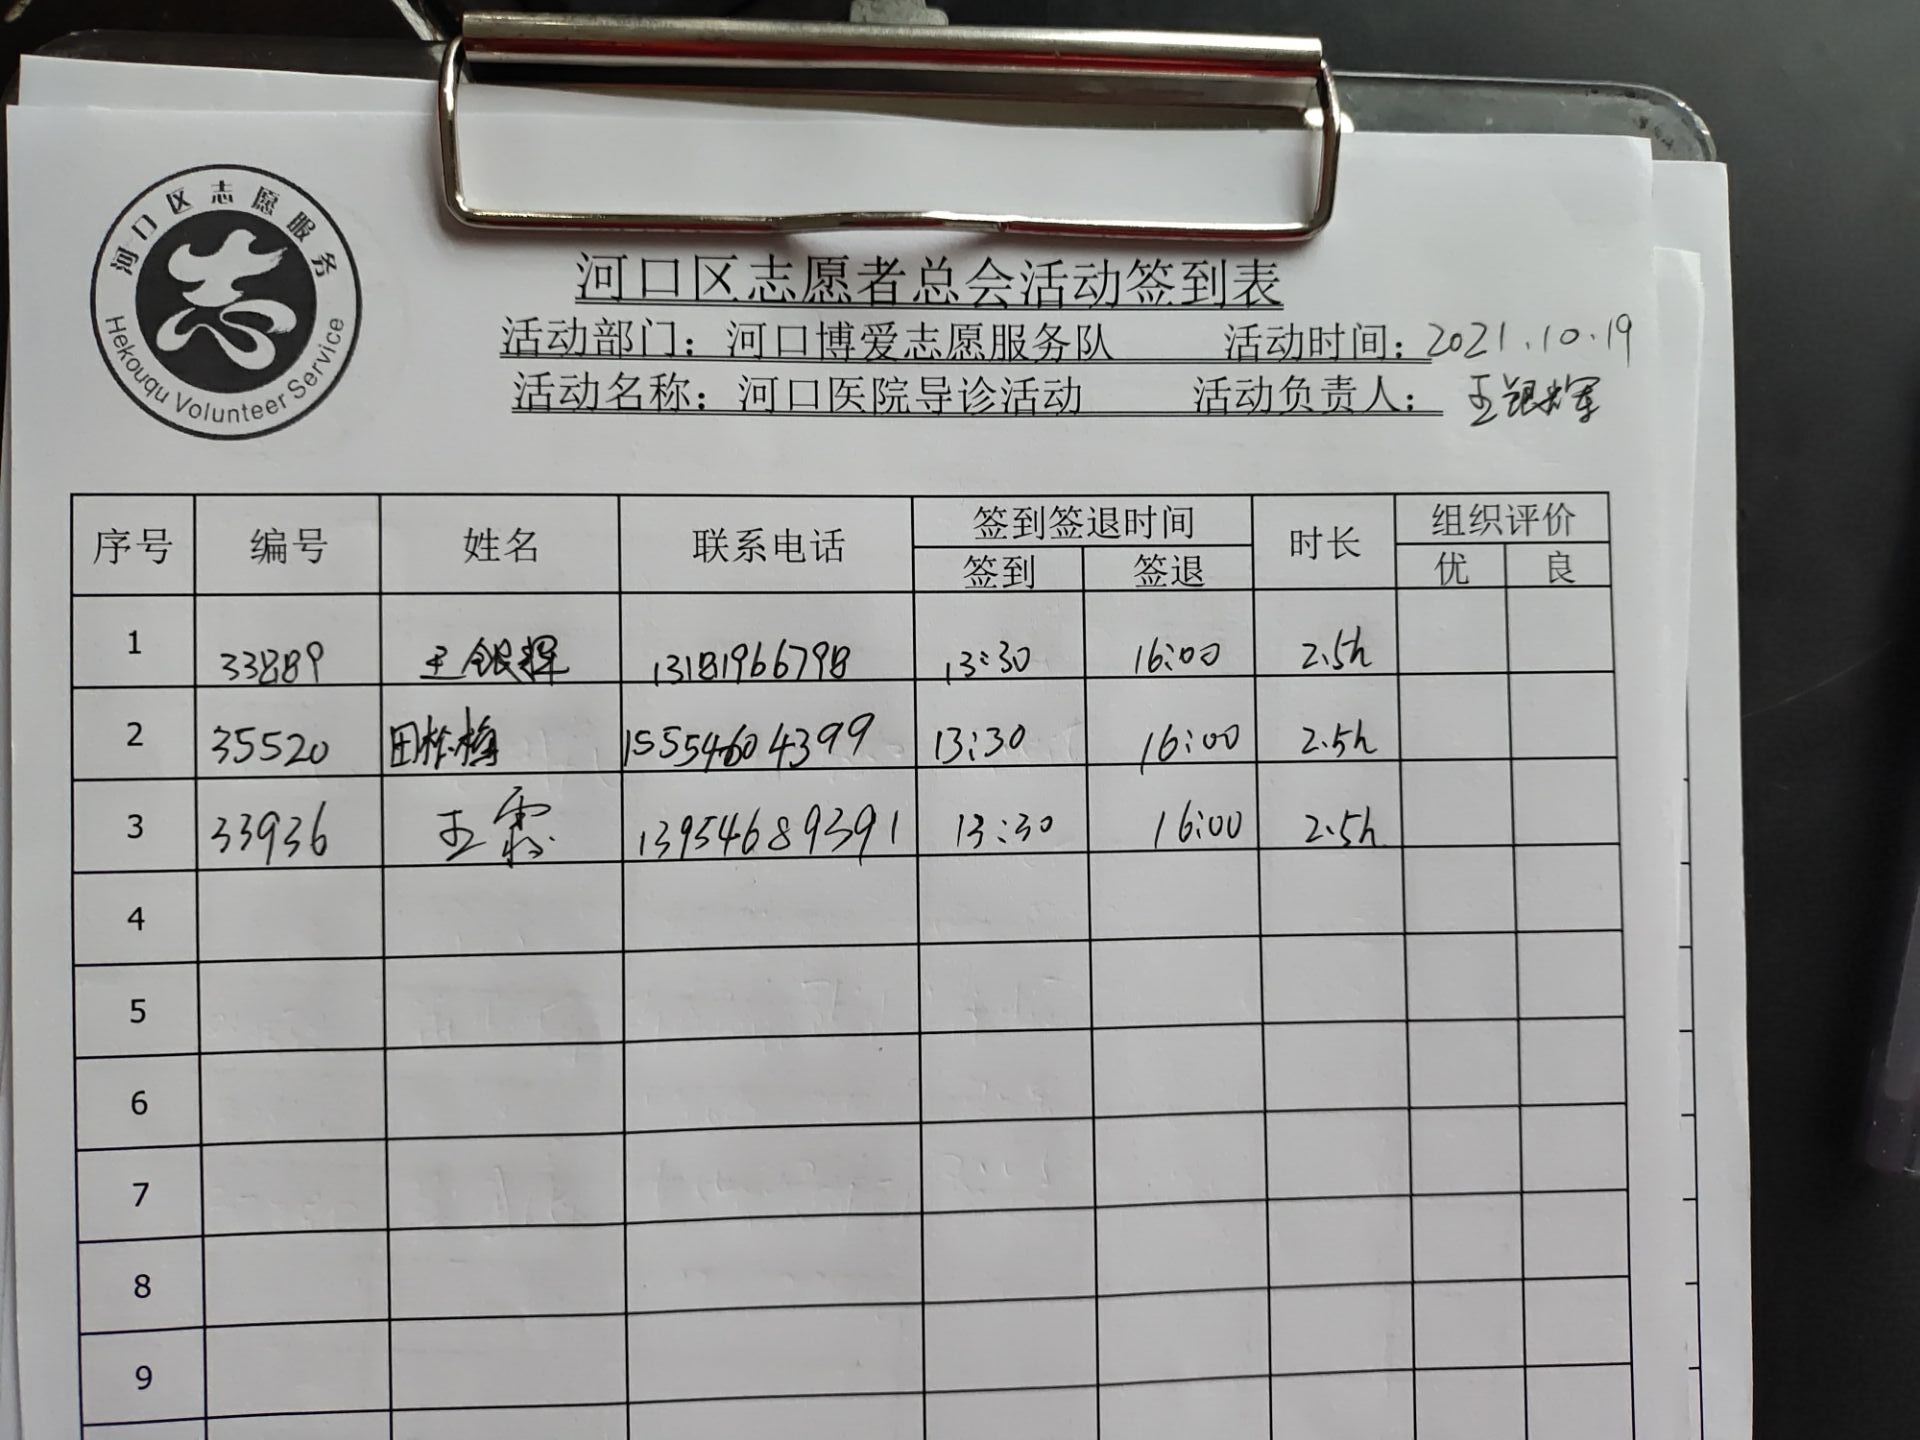 河口区志愿服务
Hekouqu Volunteer Service
河口区志愿者总会活动签到表
活动部门：河口博爱志愿服务队 活动时间：2021.10.19
活动名称：河口医院导诊活动 活动负责人：王银辉
序号 编号 姓名 联系电话 签到签退时间 时长 组织评价
签到 签退 优 良
1 33889 王银辉 13181966798 13:30 16:00 2.5h
2 35520 田 15554604399 13:30 16:00 2.5h
3 33936 王霖 13954689391 13:30 16:00 2.5h
4
5
6
7
8
9